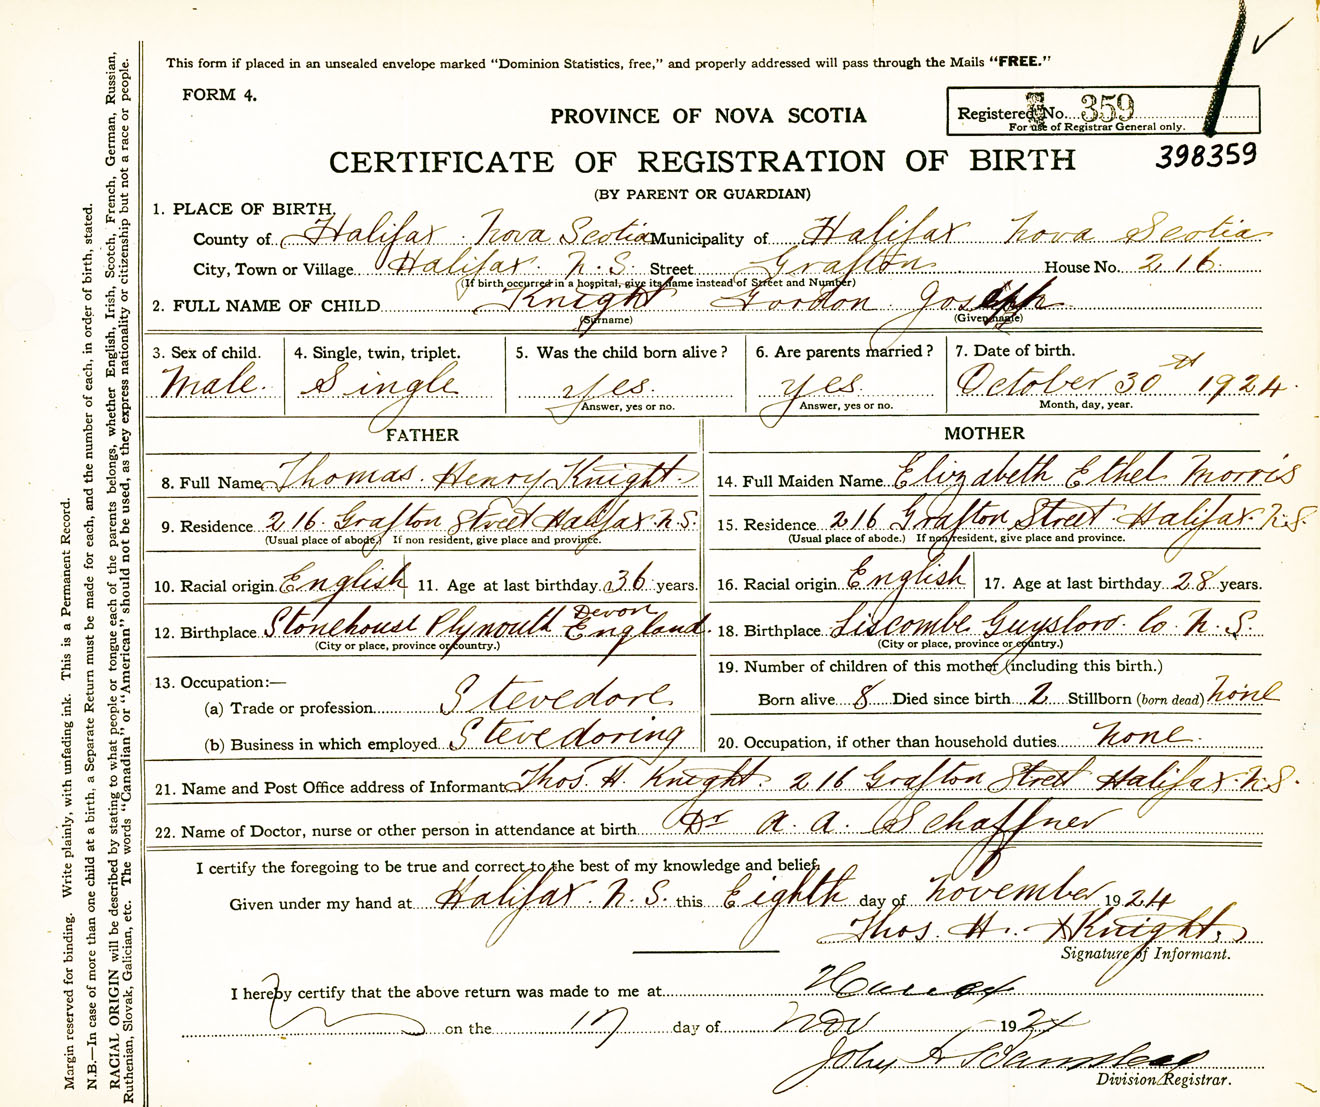 This form if placed in an unsealed envelope marked "Dominion Statistics, free," and properly addressed will pass through the Mails "FREE."
FORM 4.
PROVINCE OF NOVA SCOTIA
Registered No. 359
For use of Registrar General only.
CERTIFICATE OF REGISTRATION OF BIRTH
398359
(BY PARENT OR GUARDIAN)
1. PLACE OF BIRTH.
County of Halifax Nova Scotia Municipality of Halifax Nova Scotia
City, Town or Village Halifax. N.S. Street Grafton House No. 216
(If birth occurred in a hospital, give its name instead of Street and Number)
2. FULL NAME OF CHILD Knight Gordon Joseph
(Surname) (Given name)
3. Sex of child. 4. Single, twin, triplet. 5. Was the child born alive? 6. Are parents married? 7. Date of birth.
Male. Single yes. yes. October 30th 1924.
Answer, yes or no. Answer, yes or no. Month, day, year.
FATHER MOTHER
8. Full Name Thomas. Henry Knight. 14. Full Maiden Name Elizabeth Ethel Morris
9. Residence 216 Grafton Street Halifax. N.S. 15. Residence 216 Grafton Street Halifax. N.S.
(Usual place of abode.) If non resident, give place and province. (Usual place of abode.) If non resident, give place and province.
10. Racial origin English 11. Age at last birthday 36 years. 16. Racial origin English 17. Age at last birthday 28 years.
12. Birthplace Stonehouse Plymouth Devon England. 18. Birthplace Liscombe Guysboro. Co N.S.
(City or place, province or country.) (City or place, province or country.)
19. Number of children of this mother (including this birth.)
13. Occupation:—
(a) Trade or profession Stevedore Born alive 8 Died since birth 2 Stillborn (born dead) none
(b) Business in which employed Stevedoring 20. Occupation, if other than household duties none.
21. Name and Post Office address of Informant Thos. H. Knight. 216 Grafton Street Halifax. N.S.
22. Name of Doctor, nurse or other person in attendance at birth Dr A. A. Schaffner
I certify the foregoing to be true and correct to the best of my knowledge and belief.
Given under my hand at Halifax. N.S. this Eighth day of November 1924
Thos. H. Knight.
Signature of Informant.
I hereby certify that the above return was made to me at
on the 17 day of Nov 1924
John
Division Registrar.
Margin reserved for binding. Write plainly, with unfading ink. This is a Permanent Record.
N.B.—In case of more than one child at a birth, a Separate Return must be made for each, and the number of each, in order of birth, stated.
RACIAL ORIGIN will be described by stating to what people or tongue each of the parents belongs, whether English, Irish, Scotch, French, German, Russian,
Ruthenian, Slovak, Galician, etc. The words "Canadian" or "American" should not be used, as they express nationality or citizenship but not a race or people.